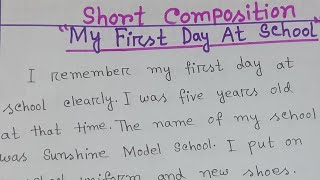 Short Composition
"My First Day At School"
I remember my first day at
school clearly. I was five years old
at that time. The name of my school
was Sunshine Model School. I put on
school uniform and new shoes.